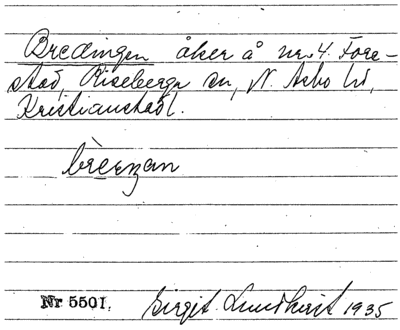 Bredingen åker å nr. 4. Fore-
stad, Riseberga sn, N. Åsbo hd,
Kristianstad l.
Nr 5501. Birgit Lundkvist 1935